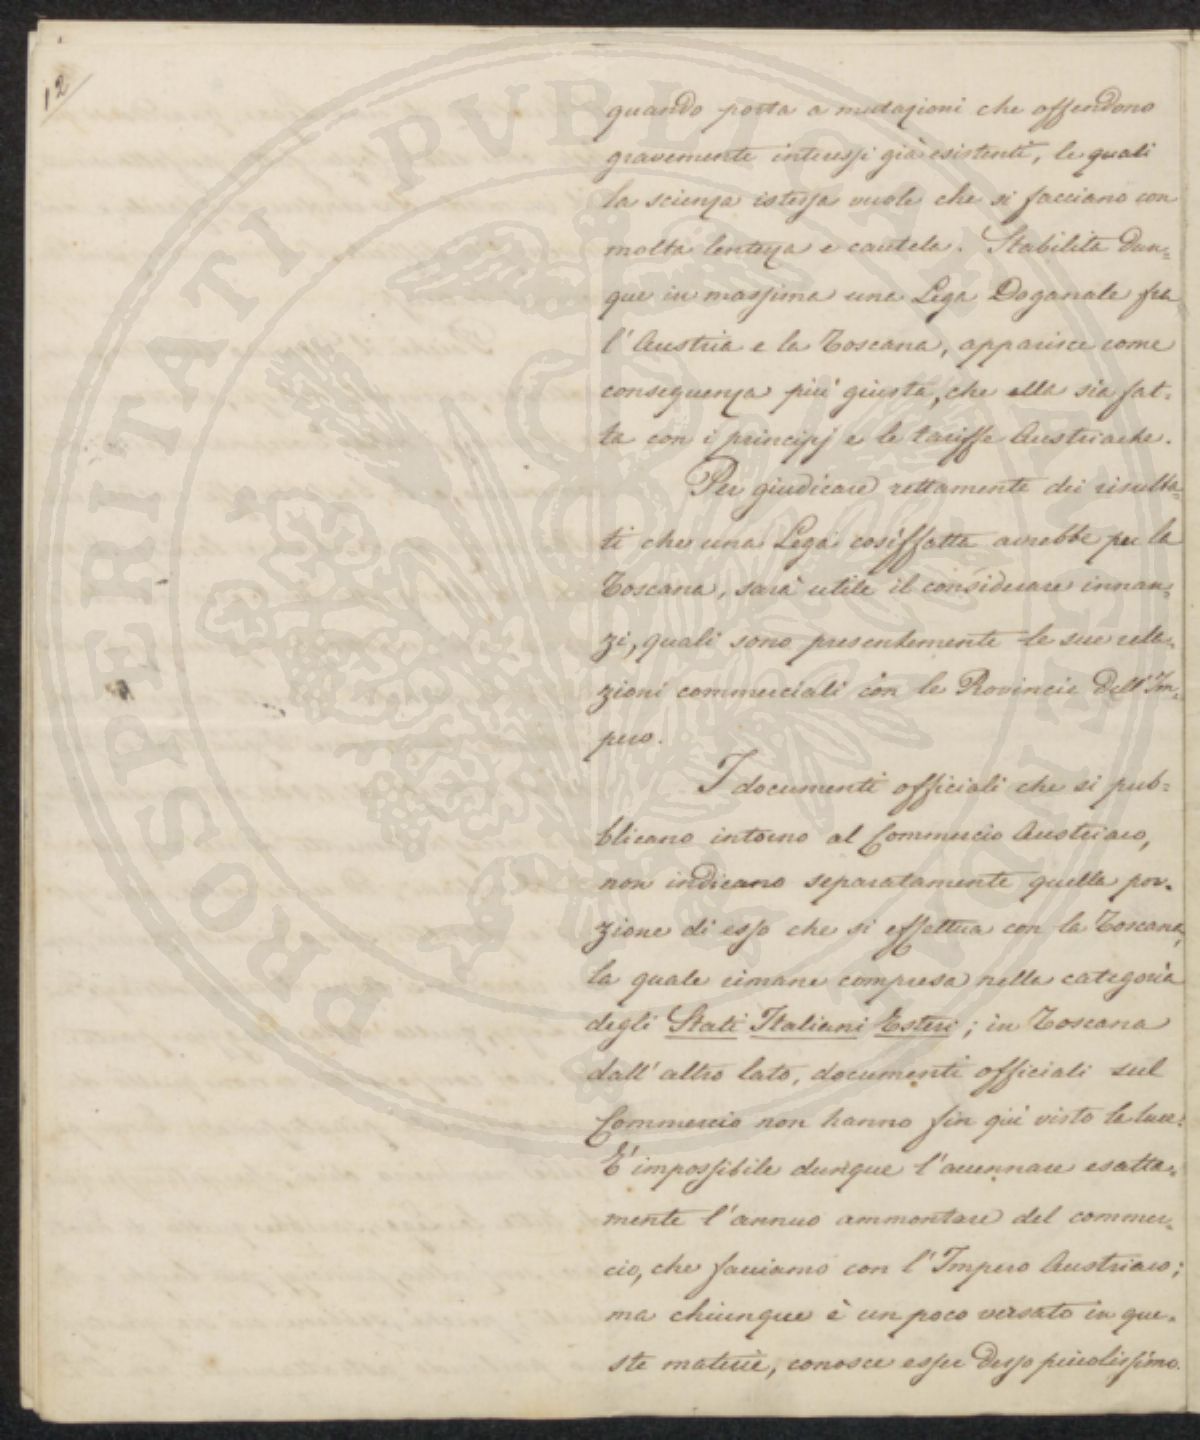 12
quando porta a mutazioni che offendono
gravemente interessi già esistenti, le quali
la scienza istessa vuole che si facciano con
molta lentezza e cautela. Stabilita dun=
que in massima una Lega Doganale fra
l'Austria e la Toscana, apparisce come
conseguenza più giusta, che ella sia fat=
ta con i principj e le tariffe Austriache.
Per giudicare rettamente dei risulta=
ti che una Lega cosiffatta avrebbe per la
Toscana, sarà utile il considerare innan=
zi, quali sono presentemente le sue rela=
zioni commerciali con le Provincie dell'Im=
pero.
I documenti officiali che si pub=
blicano intorno al Commercio Austriaco,
non indicano separatamente quella por=
zione di esso che si effettua con la Toscana,
la quale rimane compresa nella categoria
degli Stati Italiani Esteri; in Toscana
dall'altro lato, documenti officiali sul
Commercio non hanno fin quì visto la luce:
E' impossibile dunque l'accennare esatta=
mente l'annuo ammontare del commer=
cio, che facciamo con l'Impero Austriaco;
ma chiunque è un poco versato in que=
ste materie, conosce esser desso piccolissimo.
PROSPERITATI PVBLICAE AVGENDAE